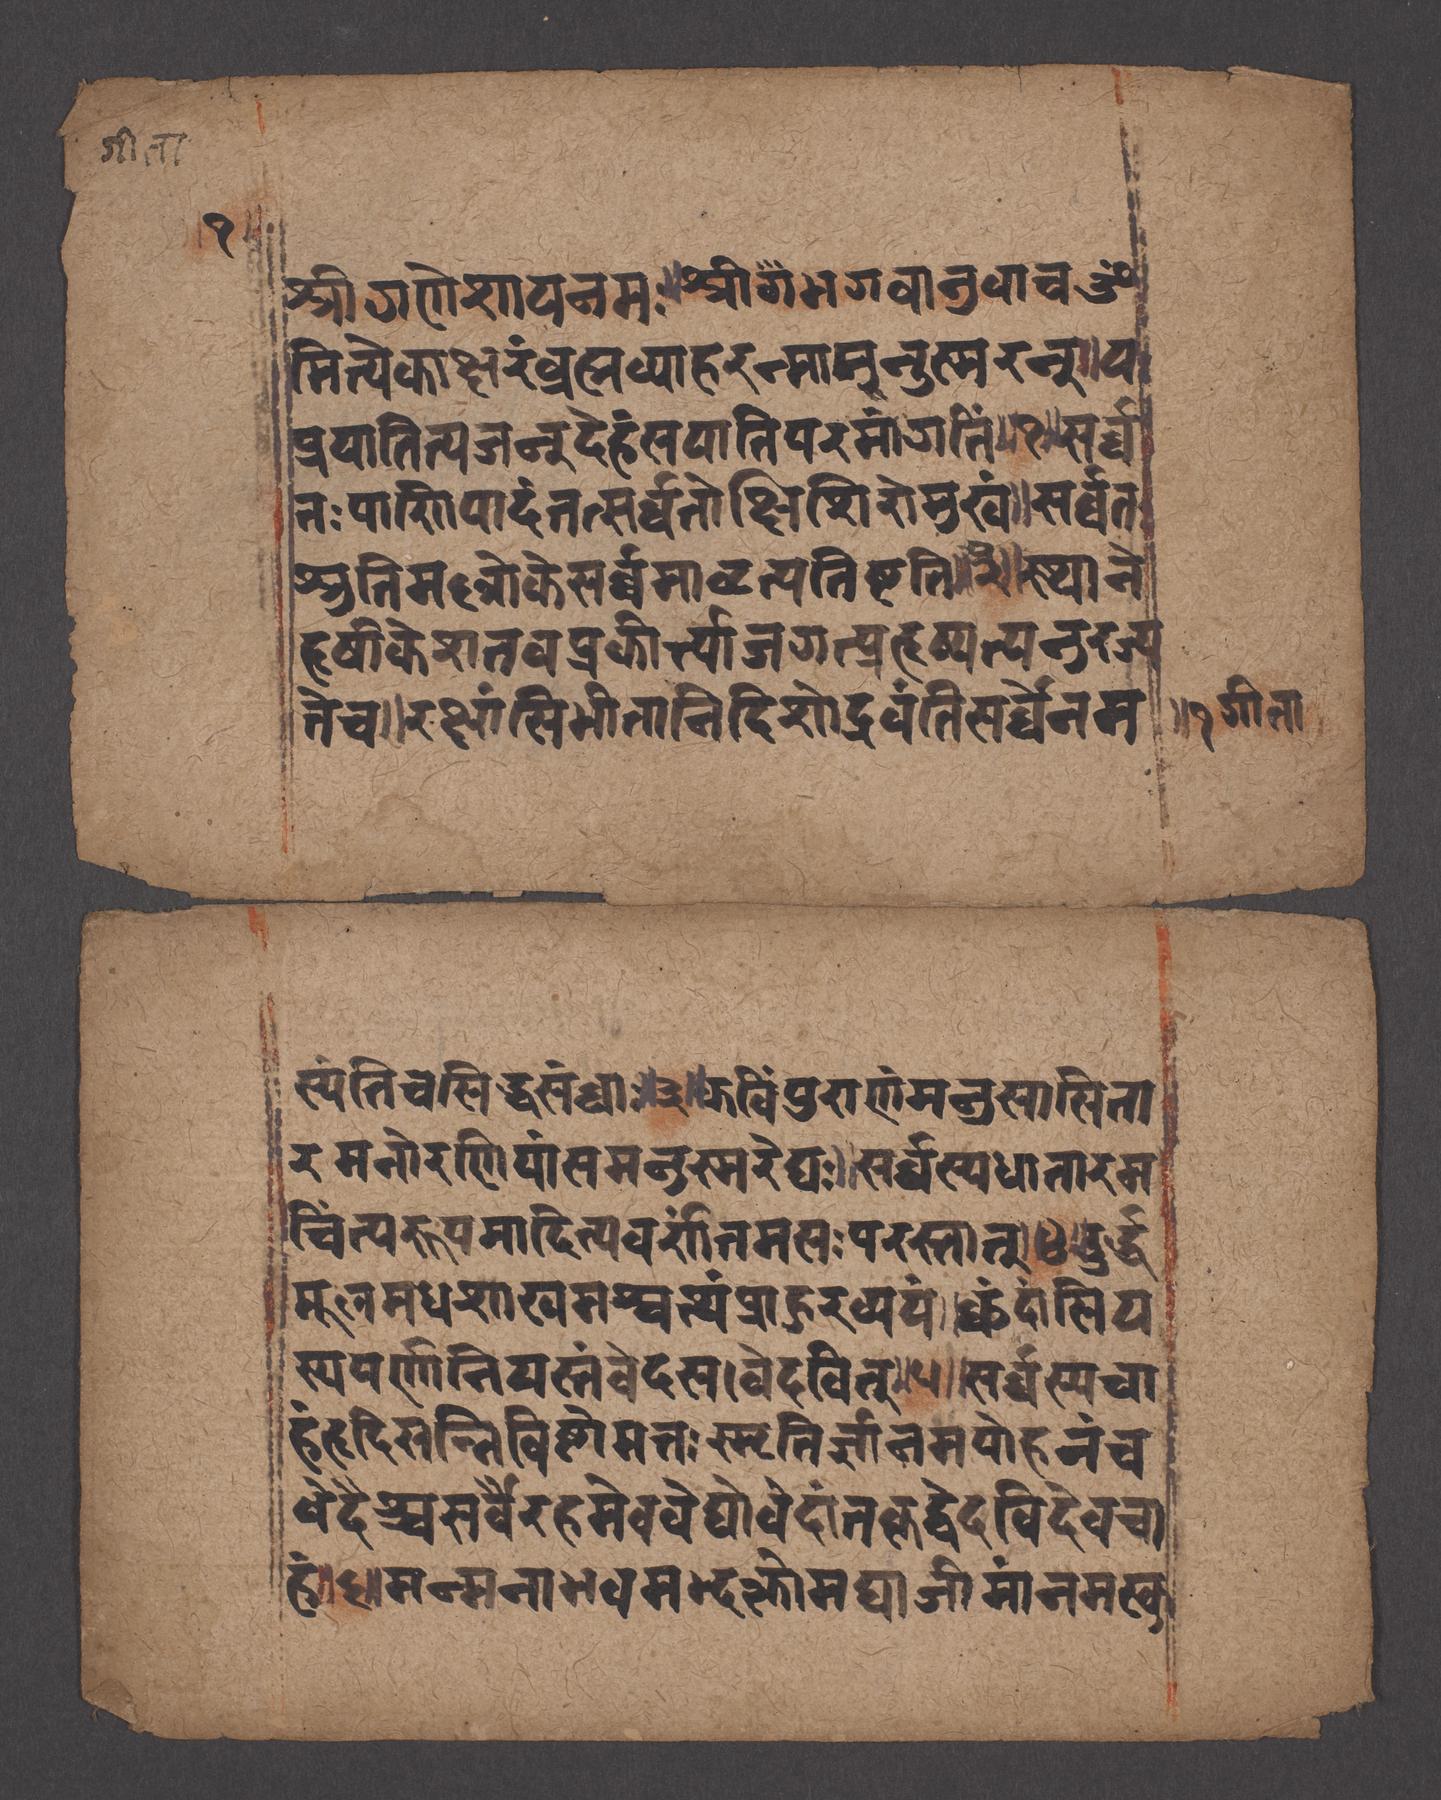 गीता
१
श्रीगणेशायनमः॥श्रीगभगवानुवाचॐ
मित्येकाक्षरंव्रह्मव्याहरन्मामनुस्मरन्॥य
प्रयातित्यजन्देहंसयातिपरमांगतिं॥१॥सर्व्व
तःपाणिपादंतत्सर्व्वतोक्षिशिरोमुखं॥सर्व्वत
श्रुतिमल्लोकेसर्व्वमावृत्यतिष्टति॥२॥स्थाने
हृषीकेशतवप्रकीर्त्याजगत्प्रहृष्यत्यनुरज्य
तेच॥रक्षांसिभीतानिदिशोद्रवंतिसर्व्वेनम
॥१गीता
स्यंतिचसिद्धसंघाः॥३॥कविंपुराणंमनुसासिता
रमनोरणियांसमनुस्मरेद्यः॥सर्व्वस्यधातारम
चिंत्यरूपमादित्यवर्णंतमसःपरस्तात्॥४॥उर्द्ध
मूलमधशाखमश्वत्थंप्राहुरव्ययं॥छंदांसिय
स्यपर्णानियस्तंवेदस।वेदवित्॥५॥सर्व्वस्यचा
हंहृदिसन्निविष्टोमत्तःस्मृतिर्ज्ञानमपोहनंच
वेदैश्चसर्वैरहमेववेद्योवेदांतकृद्वेदविदेवचा
हं॥६॥मन्मनाभवमद्भक्तोमद्याजीमांनमस्कु